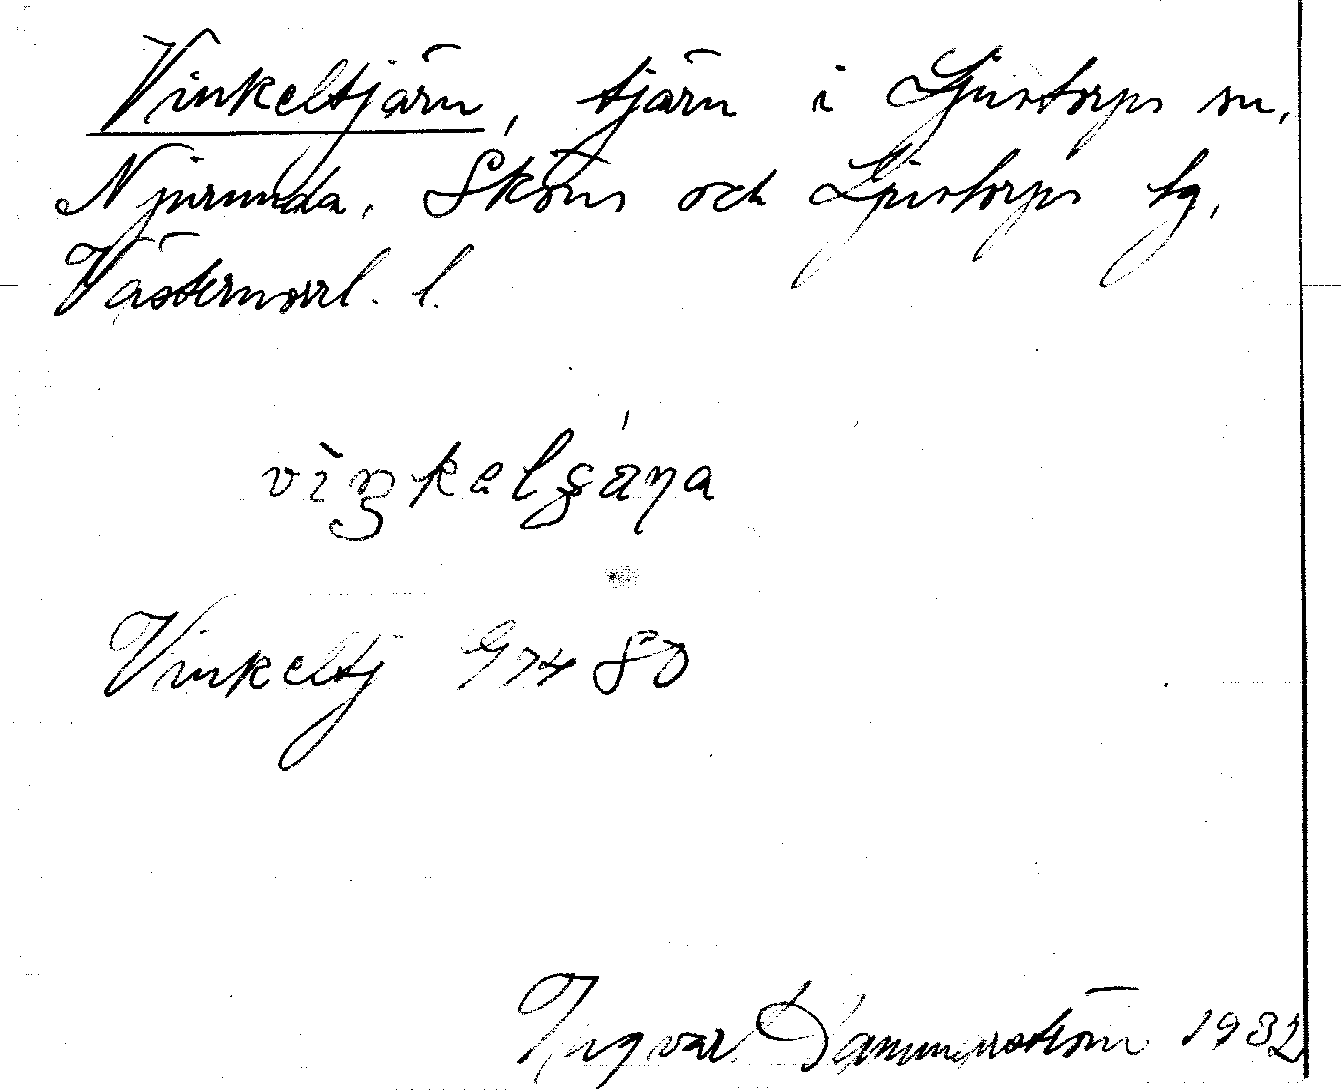 Vinkeltjärn, tjärn i Ljustorps sn,
Njurunda, Sköns och Ljustorps tg,
Västernorrl. l.
Vinkeltj G74 80
Ingvar 1932